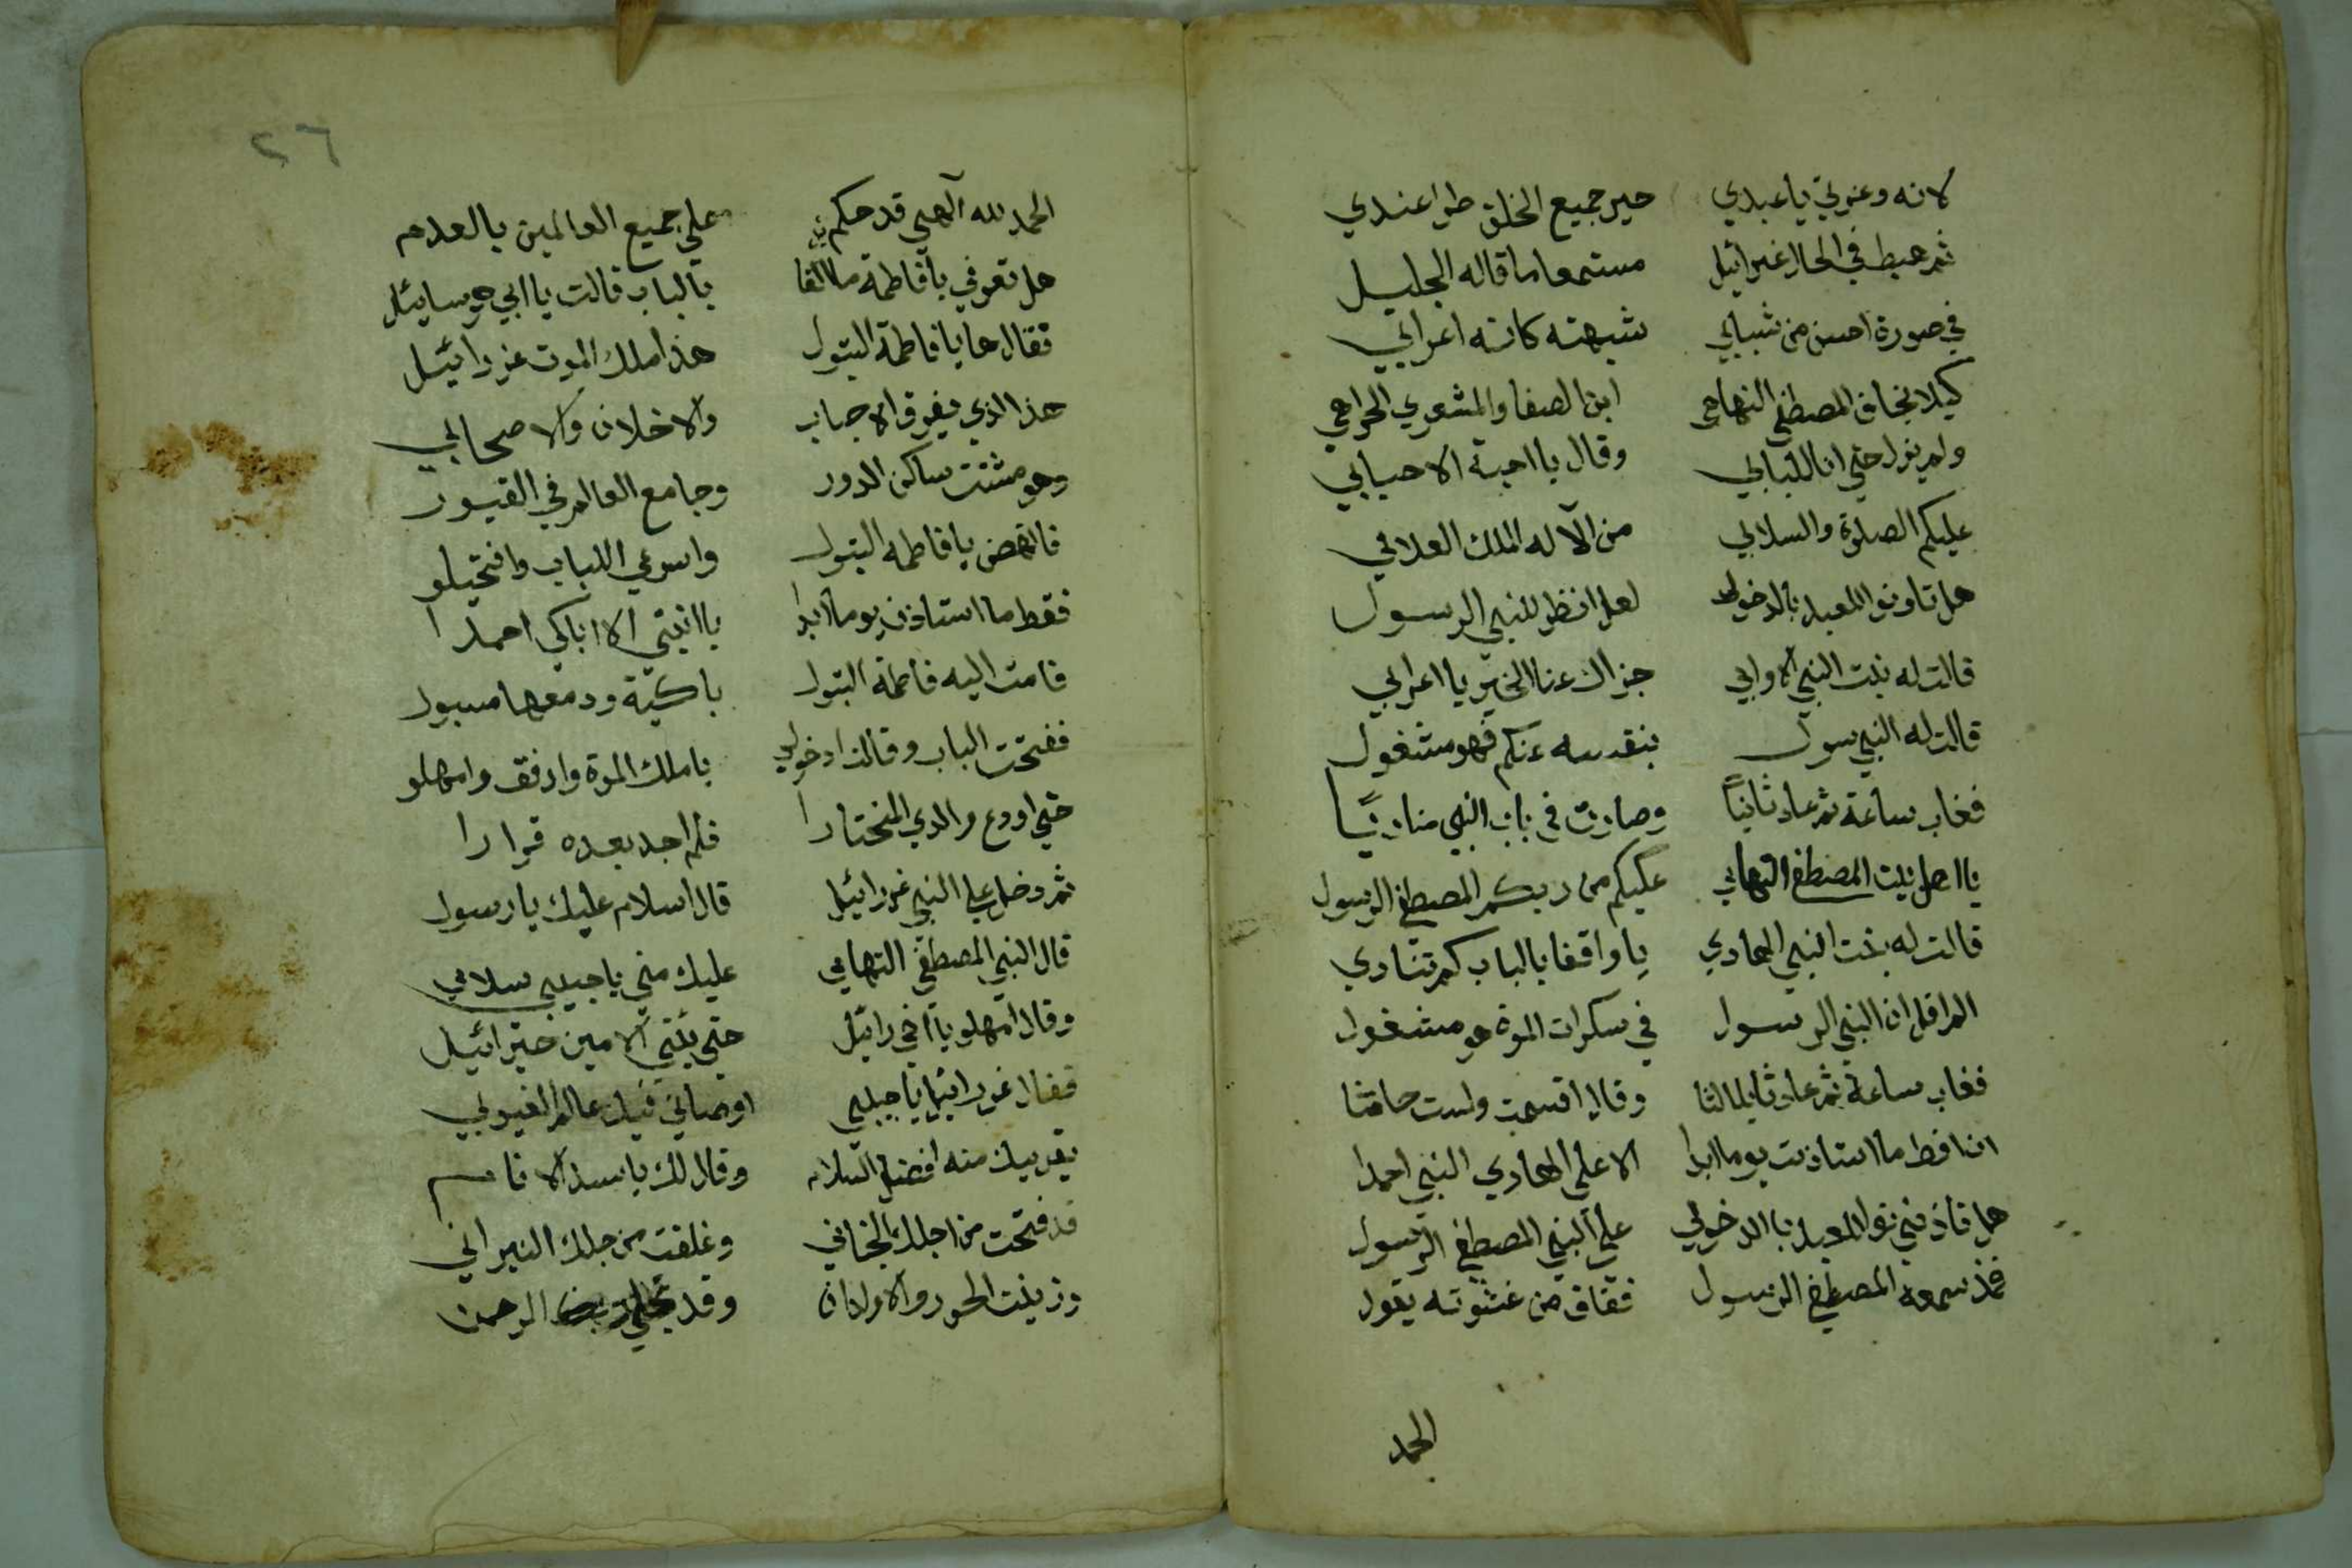 لانه وعزتي يا عبدي حير جميع الخلق طرا عندي
ثم هبط في الحال عزرائيل مستمعا ما قاله الجليل
في صورة احسن من شبابي شبهته كانه اعرابي
كيلا يخاف المصطفى التهامي ابن الصفا والمشعري الحرامي
ولم يزل حتي اتا للبابي وقال يا احبة الاحبابي
عليكم الصلوة والسلابي من الآله الملك العلامي
هل تاونو المعبد بالدخول لعل انظر للنبي الرسول
قالت له بنت النبي الاوابي جزاك عنا الخير يا اعرابي
قالت له النبي سول بنقسه عنكم فهو مشغول
فغاب ساعة ثم عاد ثانياً وصار في باب النبي مناديًا
يا اهل بيت المصطفى التهامي عليكم من ربكم المصطفى الرسول
قالت له بنت النبي الهادي يا واقفا بالباب كم تنادي
الم اقل ان النبي الرسول في سكرات الموة هو مشغول
فغاب ساعة ثم عاد ثالثا وقال اقسمت ولست حانثا
انا قط ما استاذنت يوما ابدا الا علي الهادي النبي احمدا
هل تاذنني نو المعبد با الدخولي علي النبي المصطفى الرسول
فمذ سمعه المصطفى الرسول ففاق من غشوته يقول
الحمد
٢٦
الحمد لله آلهي قد حكم علي جميع العالمين بالعدم
هل تعرفي يا فاطمة ما القا بالباب قالت يا ابي هو سايئل
فقال ها يا فاطمة البتول هذا ملك الموت عزرائيل
هذا الذي يفرق الاحباب والاخلان والاصحابي
وهو مشتت ساكن الدور وجامع العالم في القبور
فانهض يا فاطمه البتول واسرعي اللباب وافتحيلو
فقط ما استاذن يوما ابدا يا انيتي الا اباكي احمدا
قامت اليه فاطمة البتول باكية ودمعها مسبول
ففتحت الباب وقالت ادخولي يا ملك الموة وارفق وامهلو
حتي اودع والدي المختارا فلم اجد بعده قرارا
ثم دخل علي النبي عزرائيل قال اسلام عليك يا رسول
قال النبي المصطفى التهامي عليك مني يا حبيبي سلامي
وقال امهلو يا اخي رائيل حتي يئتي الامين جبرائيل
فقال عزرائيل يا حبيبي اوصاني فيك عالم الغيوبي
يقريك منه افضل السلام وقال لك يا سيد الانام
قد فتحت من اجلك الجناني وغلقت من جلك النيراني
وزينت الحور والاولدان وقد تجلي الرحمن